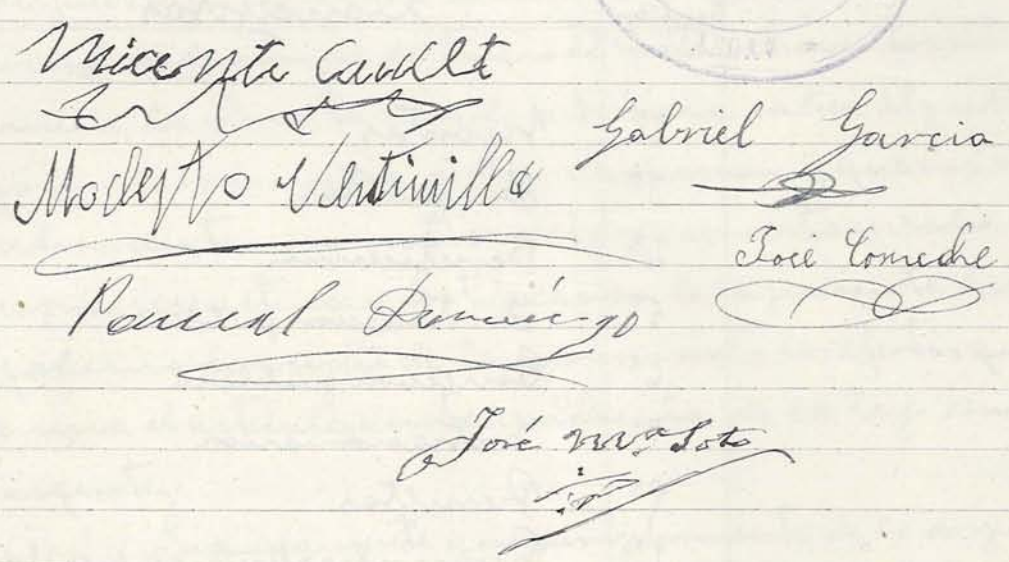 Vicente Cavallt
Gabriel Garcia
Modesto Ventimilla
José Comeche
Pascual Domingo
José Mª Soto